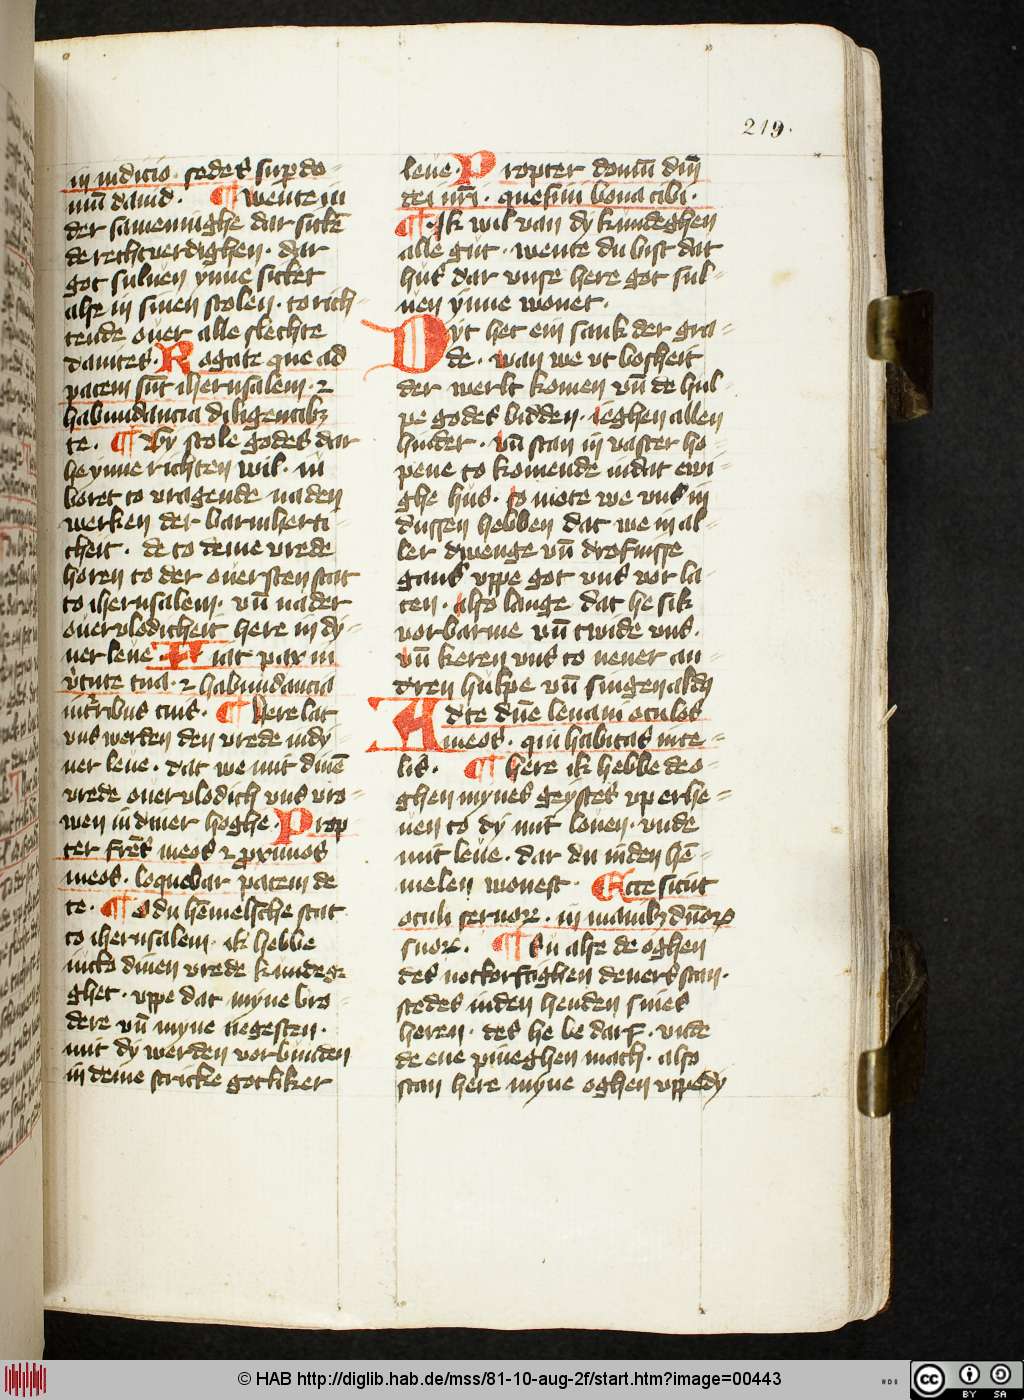 219.
in iudicio · sedes sup do-
mū dauid · ¶ Wente in
der sameninghe dar sittē
de rechtuerdighen · dar
got suluen ynne sittet
alse in sinen stolen · to rich-
tende ouer alle slechte
dauites · Rogate que ad
pacem sūt iherusalem · ⁊
habundancia diligentibꝫ
te · ¶ By stole godes dar
he ynne richten wil · is
boret to vragende na den
werken der barmherti-
cheit · de to deme vrede
horen to der ouersten stat
to iherusalem · vn̄ na der
ouervlodicheit here in dy-
ner leue · Fiat pax in
v̓tute tua · ⁊ habundancia
in tr̓ribus tuis · ¶ Here lat
vns werden den vrede in dy-
ner leue · dat we mit dinē
vrede ouervlodich vns vro-
wen in diner hoghe · Prop
ter fr̄es meos ⁊ proximos
meos · loquebar pacem de
te · ¶ O du hēmelsche stat
to iherusalem · ik hebbe
micto dinen vrede kundeg-
ghet · vppe dat myne bro-
dere vn̄ myne negesten ·
mit dy werden vorbunden
in deme stricke gotliker
leue · Propter domū dn̄i
dei nr̄i · quesiui bona tibi ·
¶ Ik wil van dy kundeghen
alle gut · wente du bist dat
hus dar vnse here got sul-
uen ynne wonet ·
Dyt het ein sank der gra-
de · wan we vt bosheit
der werlt komen vn̄ de hul-
pe godes bidden · ieghen allen
hinder · vn̄ stan in vaster ho-
pene to komende in dat ewi-
ghe hus · so mote we vns in
dussen hebben dat we in al-
ler dwenge vn̄ drofnisse
gans vppe got vns vor la-
ten · also lange dat he sik
vorbarme vn̄ twide vns ·
vn̄ keren vns to nener an-
dren hulpe vn̄ singen aldꝰ
Ad te dn̄e leuaui oculos
meos · qui habitas in ce-
lis · ¶ Here ik hebbe de o-
ghen mynes geystes vp erhe-
uen to dy mit louen · vnde
mit leue · dar du in den hē-
melen wonest · Ecce sicut
oculi seruoꝝ · in manibꝫ dn̄oꝝ
suoꝝ · ¶ Su alse de oghen
des notkorftighen deners stan ·
stedes in den henden sines
heren · des he bedarf · vnde
de ene pineghen mach · also
stan here myne oghen vppe dy
© HAB http://diglib.hab.de/mss/81-10-aug-2f/start.htm?image=00443
cc
BY SA